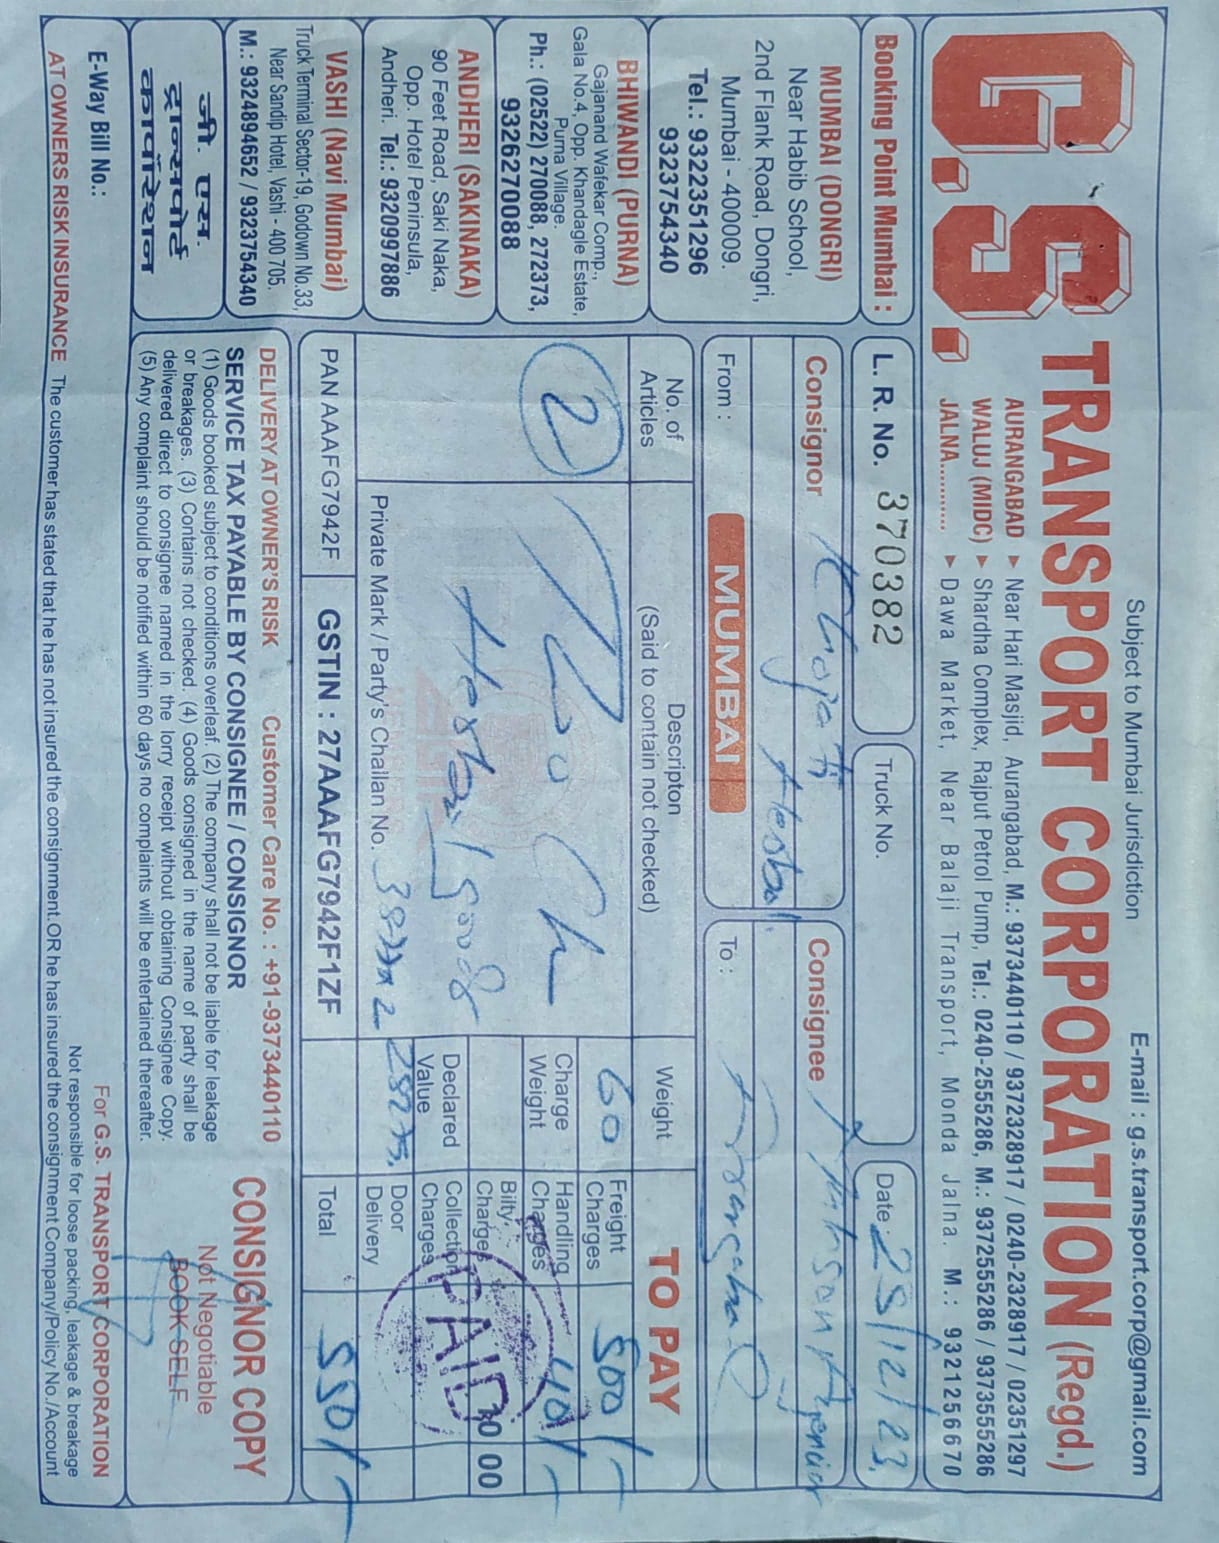 Subject to Mumbai Jurisdiction
E-mail : g.s.transport.corp@gmail.com
G.S. TRANSPORT CORPORATION (Regd.)
AURANGABAD ► Near Hari Masjid, Aurangabad, M.: 9373440110 / 9372328917 / 0240-2328917 / 02351297
WALUJ (MIDC) ► Shardha Complex, Rajput Petrol Pump, Tel.: 0240-2555286, M.: 9372555286 / 9373555286
JALNA........... ► Dawa Market, Near Balaji Transport, Monda Jalna. M.: 9321256670
Booking Point Mumbai :
L. R. No. 370382
Truck No.
Date 25/12/23
MUMBAI (DONGRI)
Near Habib School,
2nd Flank Road, Dongri,
Mumbai - 400009.
Tel.: 9322351296
9323754340
BHIWANDI (PURNA)
Gajanand Wafekar Comp.,
Gala No.4, Opp. Khandagle Estate,
Purna Village.
Ph.: (02522) 270088, 272373,
9326270088
ANDHERI (SAKINAKA)
90 Feet Road, Saki Naka,
Opp. Hotel Peninsula,
Andheri. Tel.: 9320997886
VASHI (Navi Mumbai)
Truck Terminal Sector-19, Godown No.33,
Near Sandip Hotel, Vashi - 400 705.
M.: 9324894652 / 9323754340
जी. एस.
ट्रान्सपोर्ट
कार्पोरेशन
Consignor
Herbal
Consignee
Agencies
From :
MUMBAI
To :
No. of
Articles
Descripton
(Said to contain not checked)
Weight
TO PAY
2
Two
Herbal goods
Private Mark / Party's Challan No.
60
Charge
Weight
Declared
Value
28275
Freight
Charges
500/-
Handling
Charges
40/-
Bilty
Charges
10 00
Collection
Charges
Door
Delivery
PAID
PAN AAAFG7942F
GSTIN : 27AAAFG7942F1ZF
Total
550/-
DELIVERY AT OWNER'S RISK
Customer Care No. : +91-9373440110
SERVICE TAX PAYABLE BY CONSIGNEE / CONSIGNOR
(1) Goods booked subject to conditions overleaf. (2) The company shall not be liable for leakage
or breakages. (3) Contains not checked. (4) Goods consigned in the name of party shall be
delivered direct to consignee named in the lorry receipt without obtaining Consignee Copy.
(5) Any complaint should be notified within 60 days no complaints will be entertained thereafter.
CONSIGNOR COPY
Not Negotiable
BOOK SELF
E-Way Bill No.:
For G.S. TRANSPORT CORPORATION
Not responsible for loose packing, leakage & breakage
AT OWNERS RISK INSURANCE The customer has stated that he has not insured the consignment. OR he has insured the consignment Company/Policy No./Account